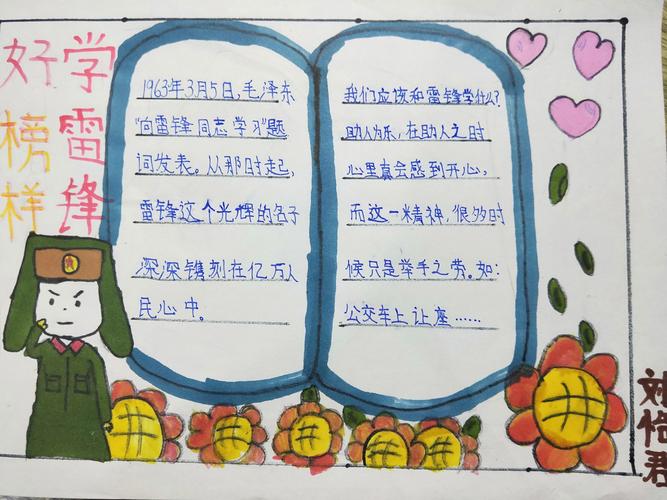 学雷锋
好榜样
1963年3月5日,毛泽东
"向雷锋同志学习"题
词发表。从那时起,
雷锋这个光辉的名子
深深镌刻在亿万人
民心中。
我们应该和雷锋学什么?
助人为乐,在助人之时
心里真会感到开心,
而这一精神,很多时
候只是举手之劳。如:
公交车上让座……
刘恺君